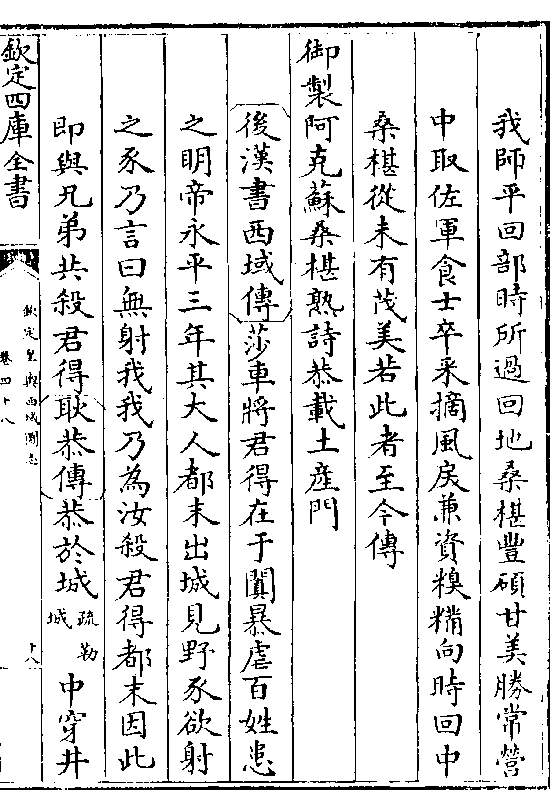 我師平回部時所過回地桑椹豐碩甘美勝常營
中取佐軍食士卒采摘風戾兼資糗糒向時回中
桑椹從未有茂美若此者至今傳
御製阿克蘇桑椹熟詩恭載土産門
後漢書西域傳莎車將君得在于闐暴虐百姓患
之明帝永平三年其大人都末出城見野豕欲射
之豕乃言曰無射我我乃為汝殺君得都末因此
即與兄弟共殺君得耿恭傳恭於城疏勒城中穿井
欽定四庫全書
欽定皇輿西域圖志
卷四十八
十八